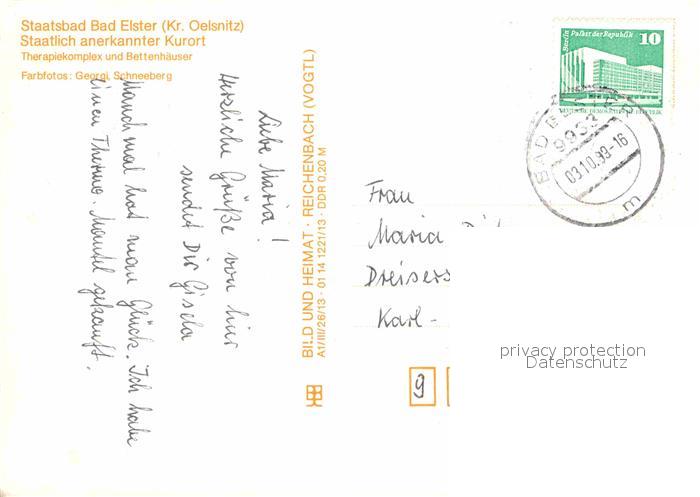 Staatsbad Bad Elster (Kr. Oelsnitz)
Staatlich anerkannter Kurort
Therapiekomplex und Bettenhäuser
Farbfotos: Georgi, Schneeberg
Liebe Maria!
Herzliche Grüße von hier
sendet Dir Gisela
Manchmal hat man Glück. Ich habe
einen Thermo-Mantel gekauft.
BILD UND HEIMAT · REICHENBACH (VOGTL)
A1/III/26/13 · 01 14 1221/13 · DDR 0,20 M
Berlin, Palast der Republik
10
DEUTSCHE DEMOKRATISCHE REPUBLIK
BAD ELSTER
9933
03.10.83-16
m
Frau
Maria
Dreisers
Karl-
9
privacy protection
Datenschutz